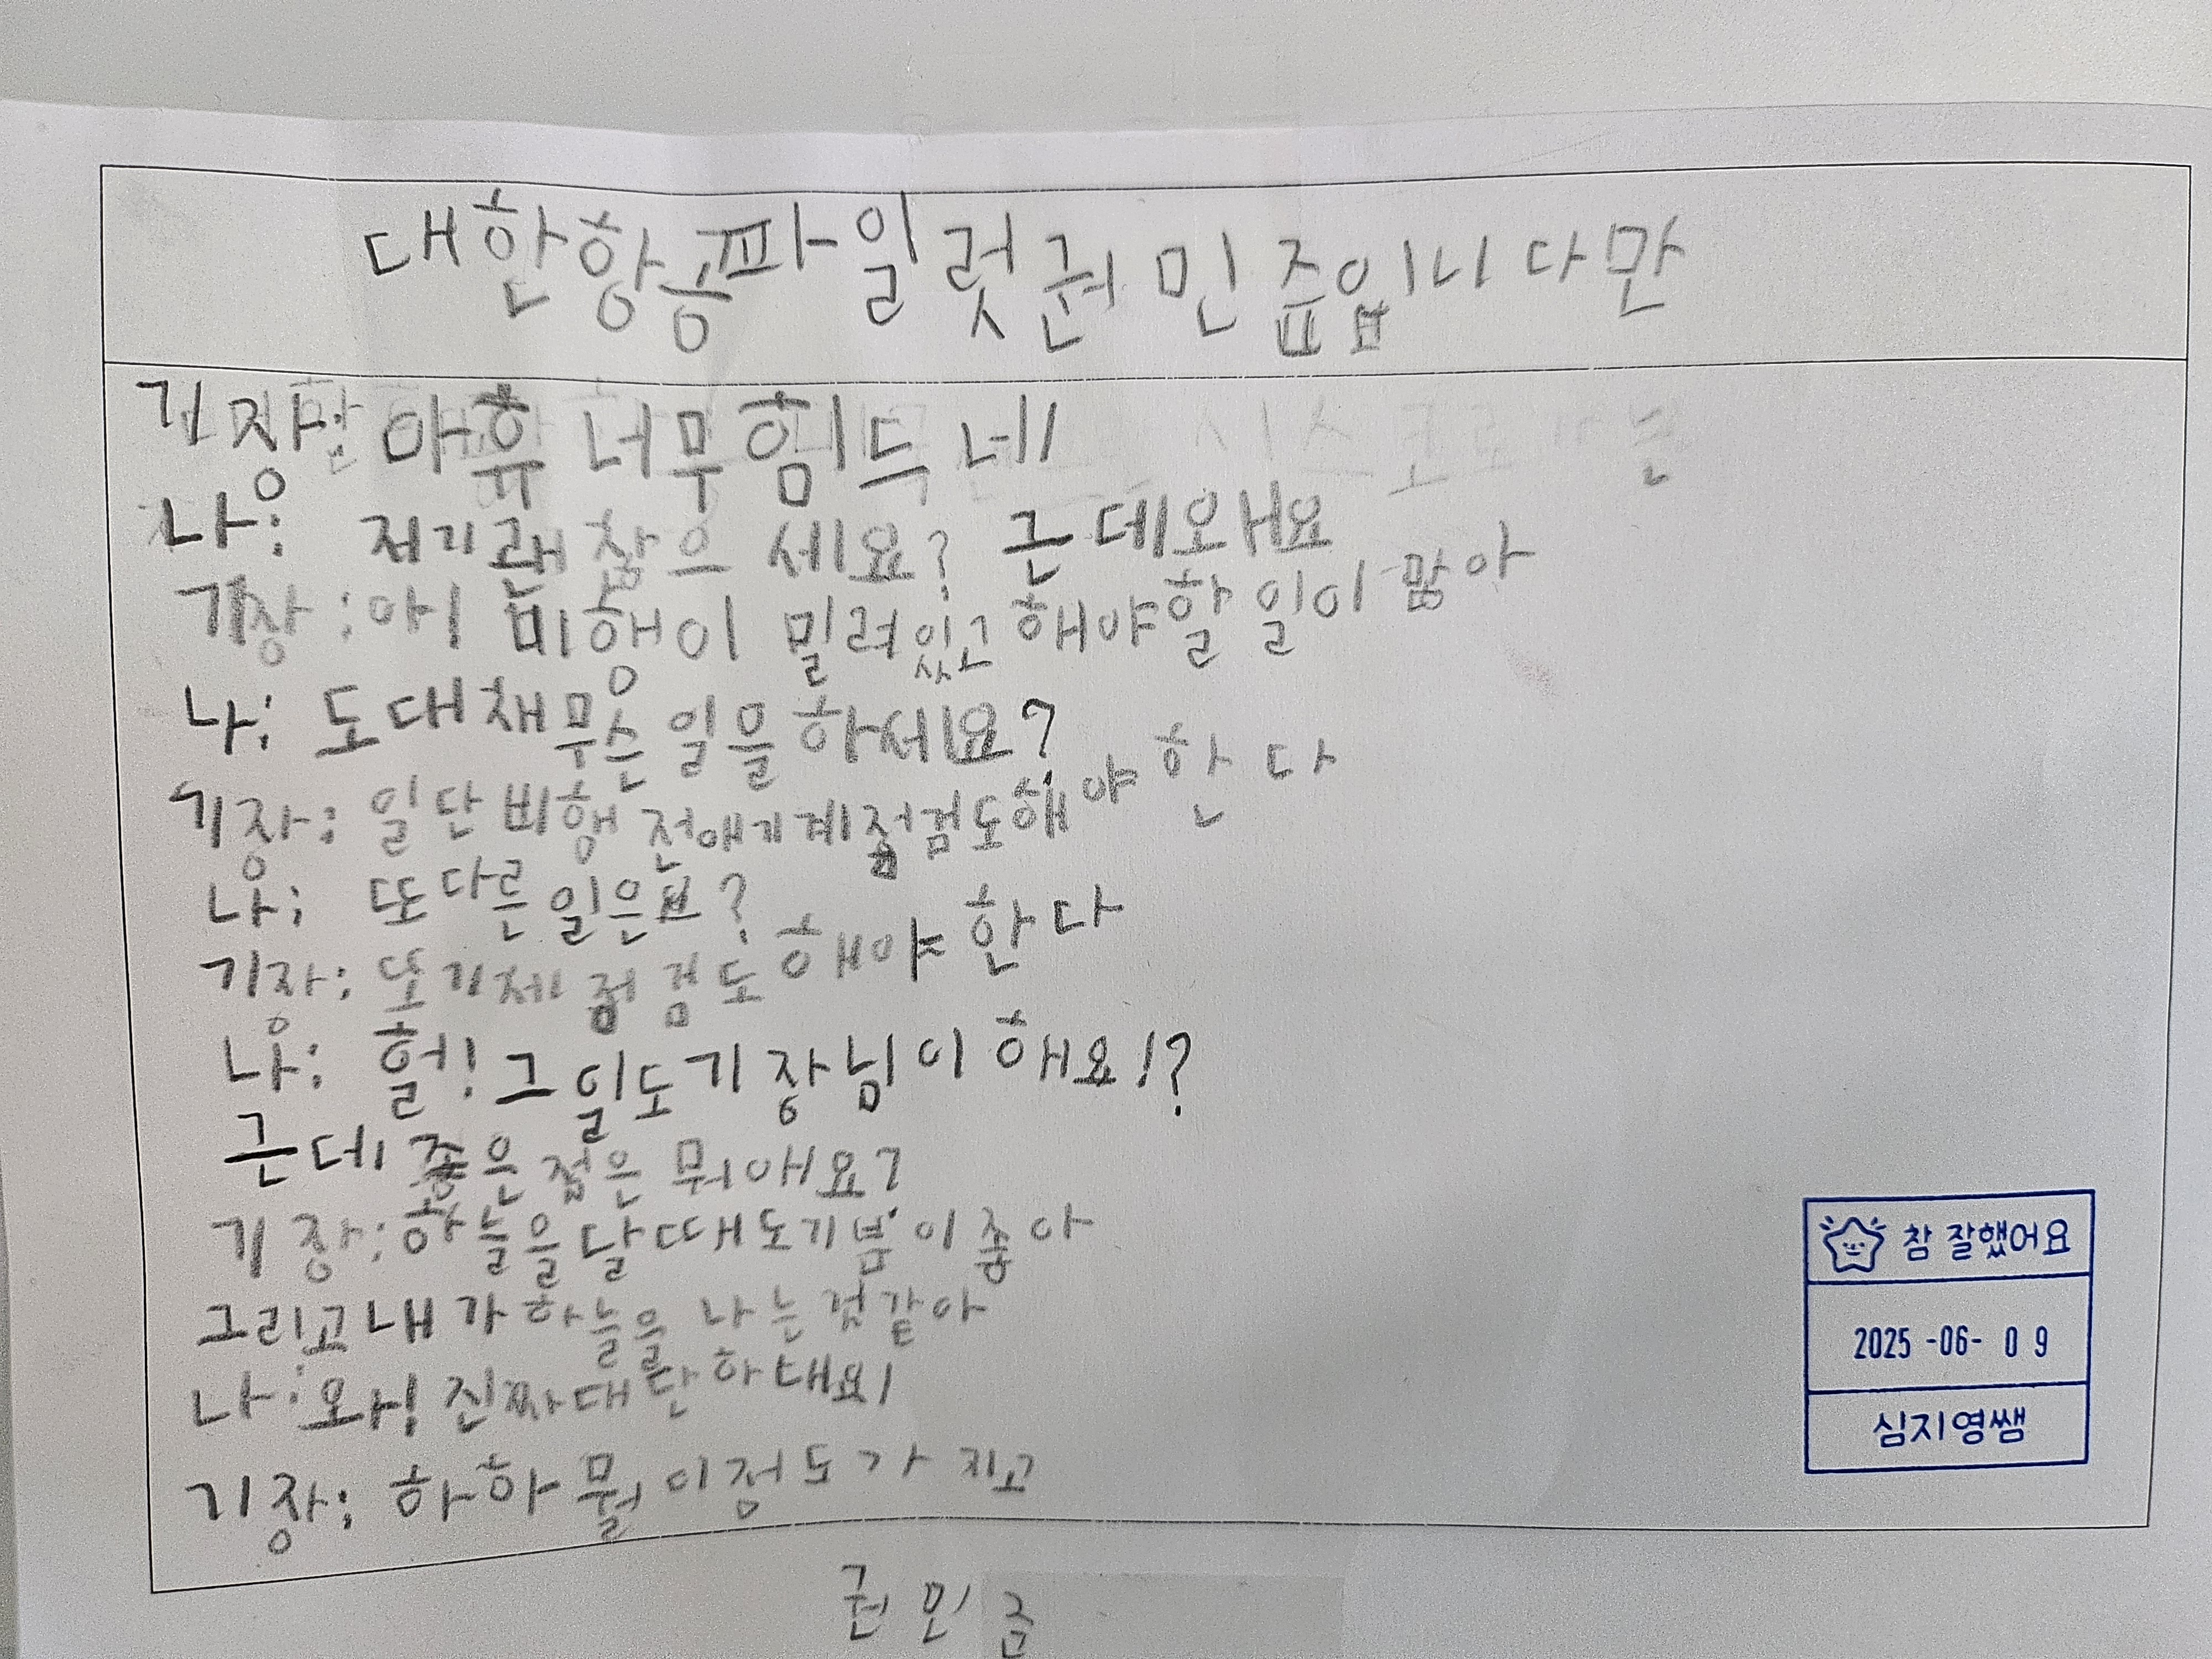 대한항공파일럿권민쥽입니다만
기장: 아휴 너무힘드네
나: 저기괜찮으세요? 근데왜요
기장: 아! 비행이 밀려있고해야할일이많아
나: 도대채무슨일을하세요?
기장: 일단비행전애기계점검도해야한다
나: 또다른일은요?
기장: 또기체점검도해야한다
나: 헐! 그일도기장님이해요!?
근데좋은점은뭐애요?
기장: 하늘을날때도기붐이좋아
그리고내가하늘을나는것같아
나: 와! 진짜대단하내요!
기장: 하하뭘이정도가지고
참 잘했어요
2025-06-09
심지영쌤
권민